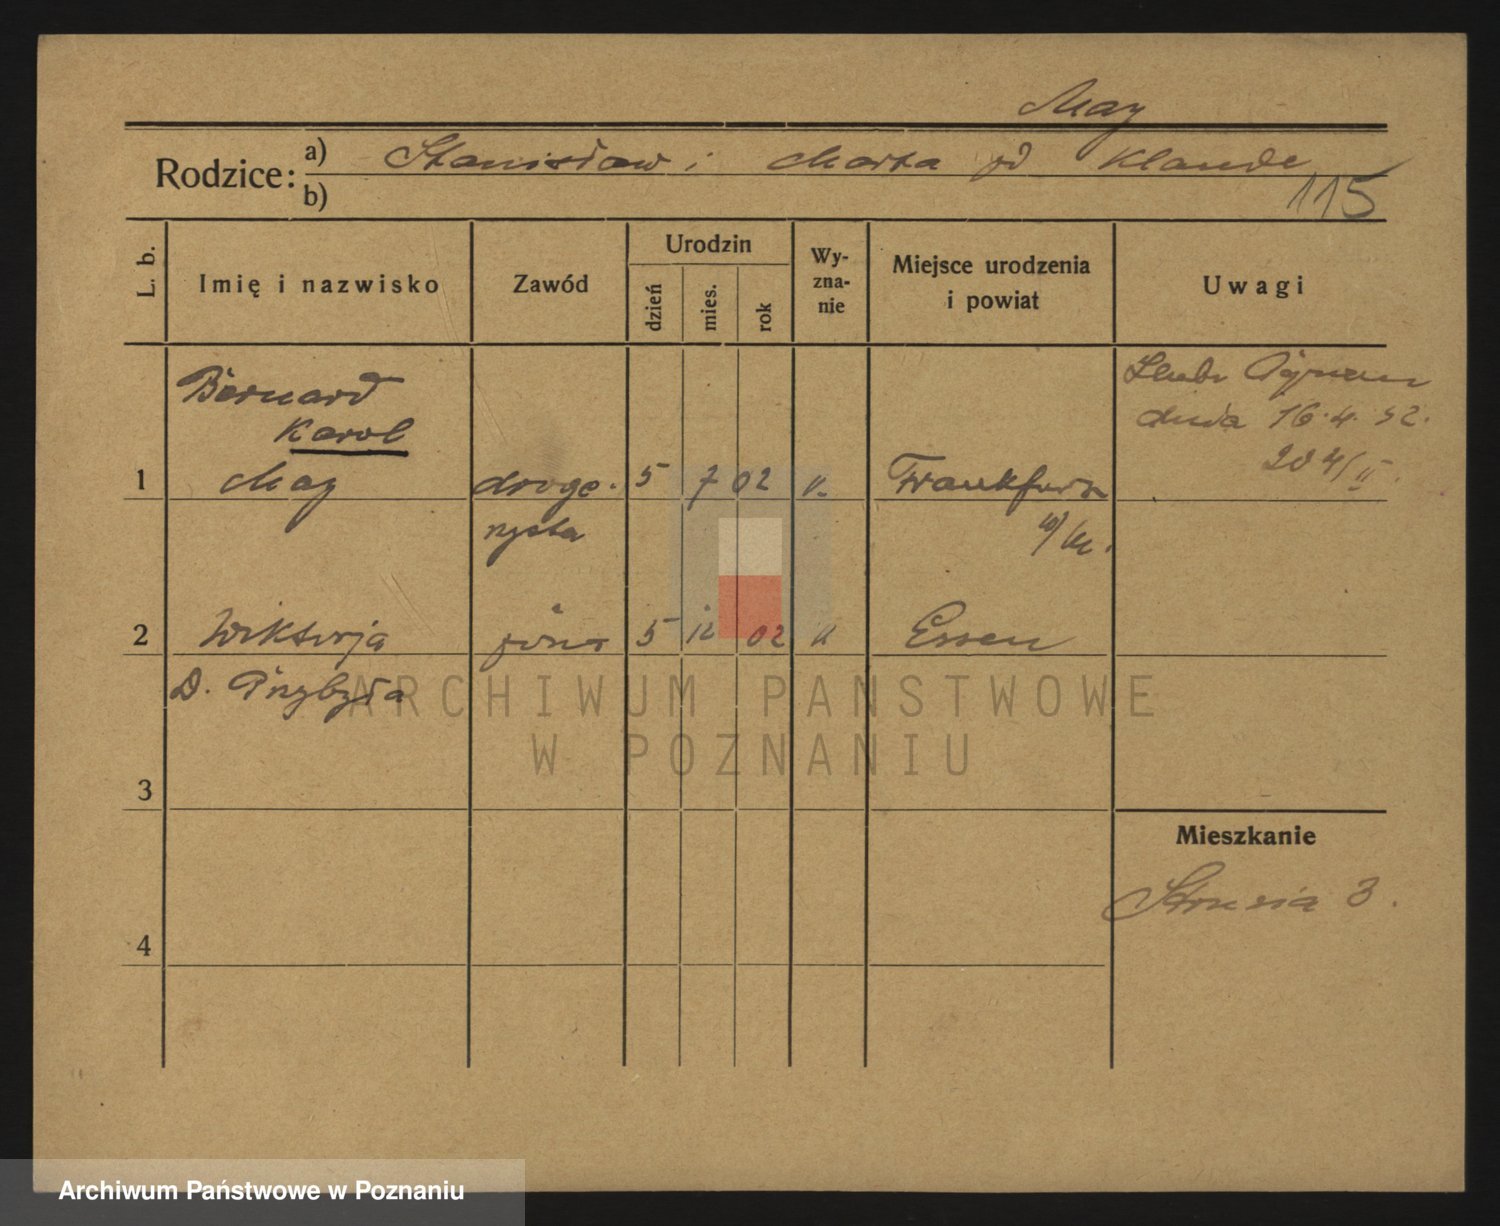 May
Rodzice: a) Stanisław i Marta
b)
115
L. b.
Imię i nazwisko
Zawód
Urodzin
dzień
mies.
rok
Wy-
zna-
nie
Miejsce urodzenia
i powiat
Uwagi
Bernard
Karol
1 May droge- 5 7 02 Frankfurt
rzysta
dnia 16.4.
204/II.
2 Wiktorja żona 5 12 02 Essen
D. Przybyła
ARCHIWUM PAŃSTWOWE
W POZNANIU
3
Mieszkanie
Strusia 3.
4
Archiwum Państwowe w Poznaniu